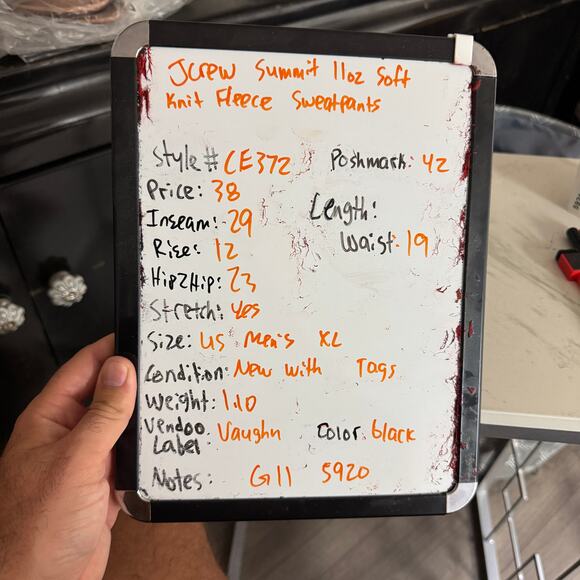 Jcrew Summit 11oz Soft
Knit Fleece Sweatpants
Style# CE372 Poshmark: 42
Price: 38
Inseam: 29 Length:
Rise: 12 Waist: 19
Hip2Hip: 23
Stretch: Yes
Size: US Men's XL
Condition: New with Tags
Weight: 1.10
Vendoo Label Vaughn Color: black
Notes: G11 5920